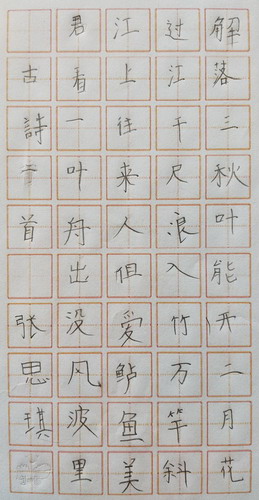 解落三秋叶能开二月花
过江千尺浪入竹万竿斜
江上往来人但爱鲈鱼美
君看一叶舟出没风波里
古詩二首 张思琪